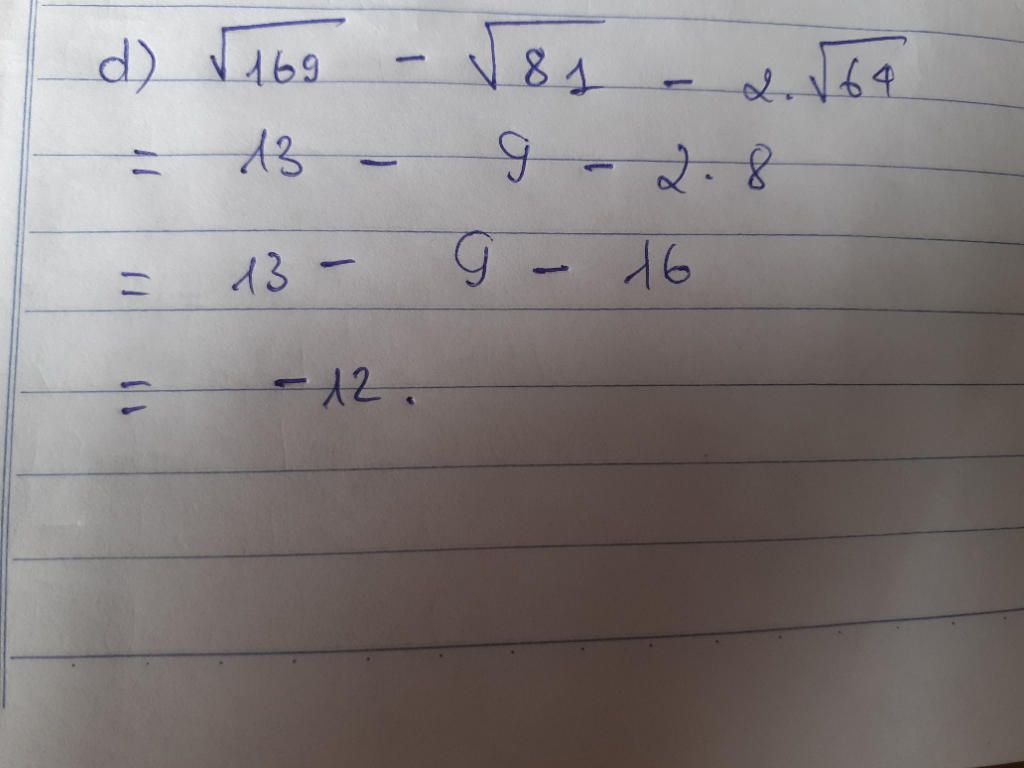 d) √169 - √81 - 2.√64
= 13 - 9 - 2.8
= 13 - 9 - 16
= -12.